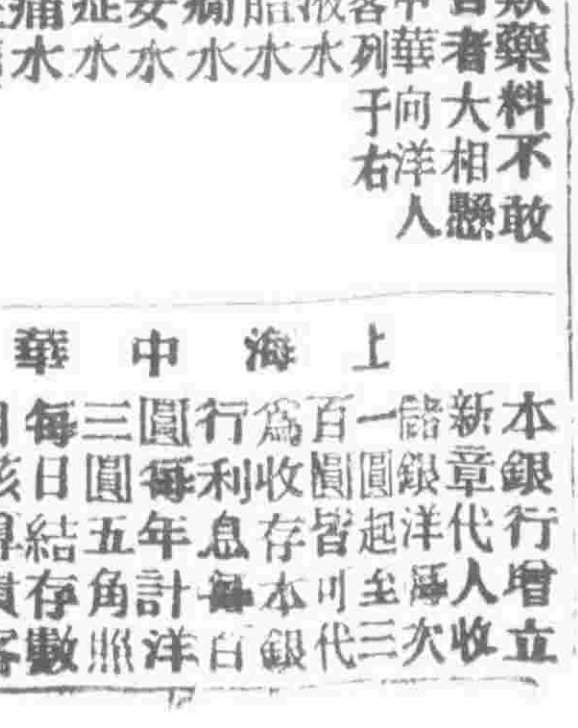 藥料不敢
者大相懸
華向洋人
列于右
水
水
水
水
水
水
上海中華
本銀行增立
新章代人收
儲銀洋每次
一圓起至三
百圓皆可代
爲收存本銀
行利息每百
圓每年計洋
三圓五角照
每日結存數